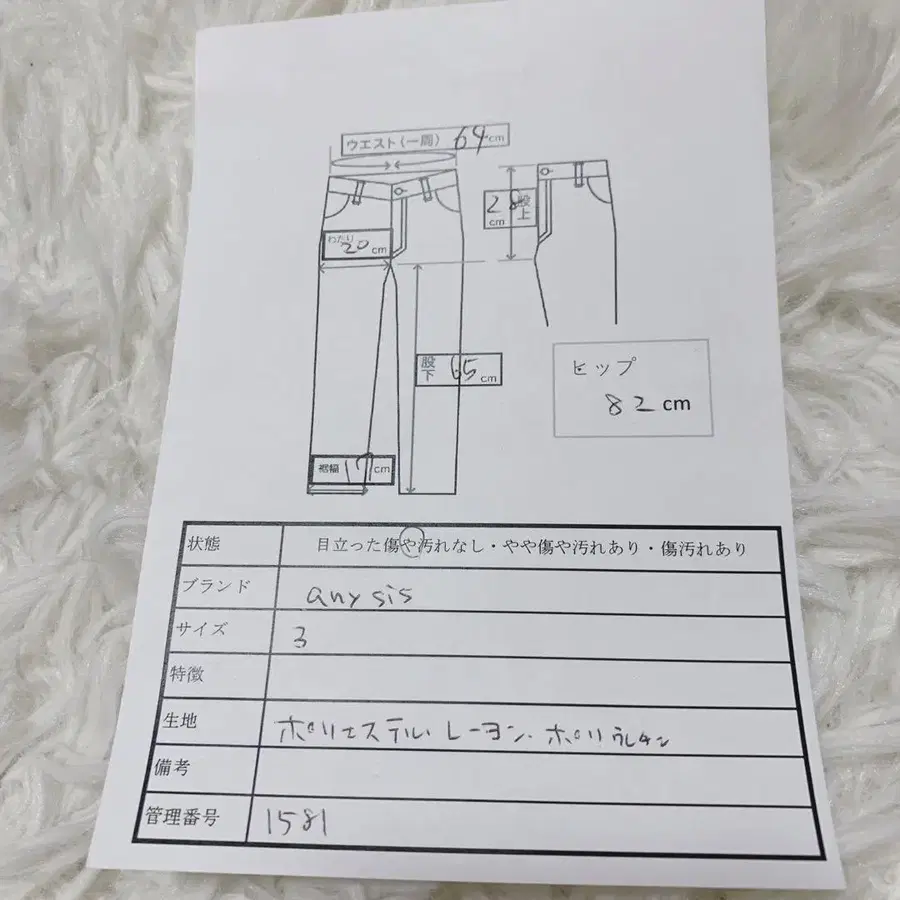 ウエスト(一周) 64cm
28 cm 股上
わたり 20 cm
股下 65 cm
ヒップ
82 cm
裾幅 17 cm
状態 目立った傷や汚れなし・やや傷や汚れあり・傷汚れあり
ブランド any sis
サイズ 3
特徴
生地 ポリエステル レーヨン・ポリウレタン
備考
管理番号 1581